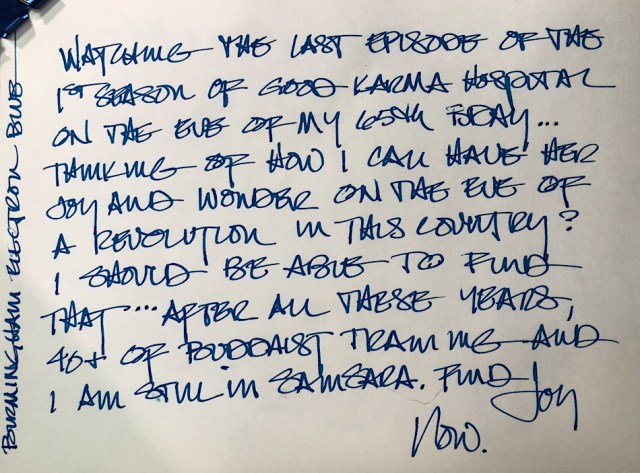 WATCHING THE LAST EPISODE OF THE
1ST SEASON OF GOOD KARMA HOSPITAL
ON THE EVE OF MY 65th TODAY...
THINKING OF HOW I CAN HAVE HER
JOY AND WONDER ON THE EVE OF
A REVOLUTION IN THIS COUNTRY?
I SHOULD BE ABLE TO FIND
THAT... AFTER ALL THESE YEARS,
40+ OF BUDDHIST TRAINING AND
I AM STILL IN SAMSARA. FIND JOY
NOW.
BIRMINGHAM ELECTRON BLUE